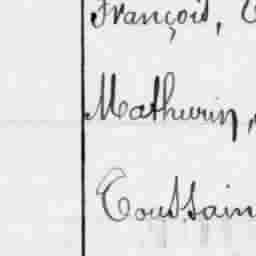 François,
Mathurin,
Toussain